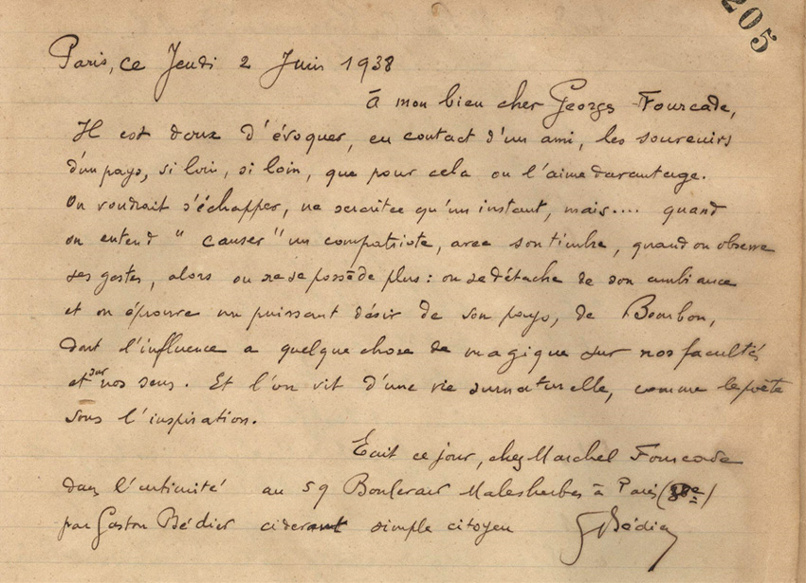 205
Paris, ce Jeudi 2 Juin 1938
à mon bien cher Georges Fourcade,
Il est doux d'évoquer, au contact d'un ami, les souvenirs
d'un pays, si loin, si loin, que pour cela on l'aime davantage.
On voudrait s'échapper, ne serait-ce qu'un instant, mais.... quand
on entend "causer" un compatriote, avec son timbre, quand on observe
ses gestes, alors on ne se possède plus : on se détache de son ambiance
et on éprouve un puissant désir de son pays, de Bourbon,
dont l'influence a quelque chose de magique sur nos facultés
et sur nos sens. Et l'on vit d'une vie surnaturelle, comme le poète
sous l'inspiration.
Ecrit ce jour, chez Marchel Fourcade
dans l'intimité au 59 Boulevard Malesherbes à Paris (8e)
par Gaston Bédier simple citoyen GBédier